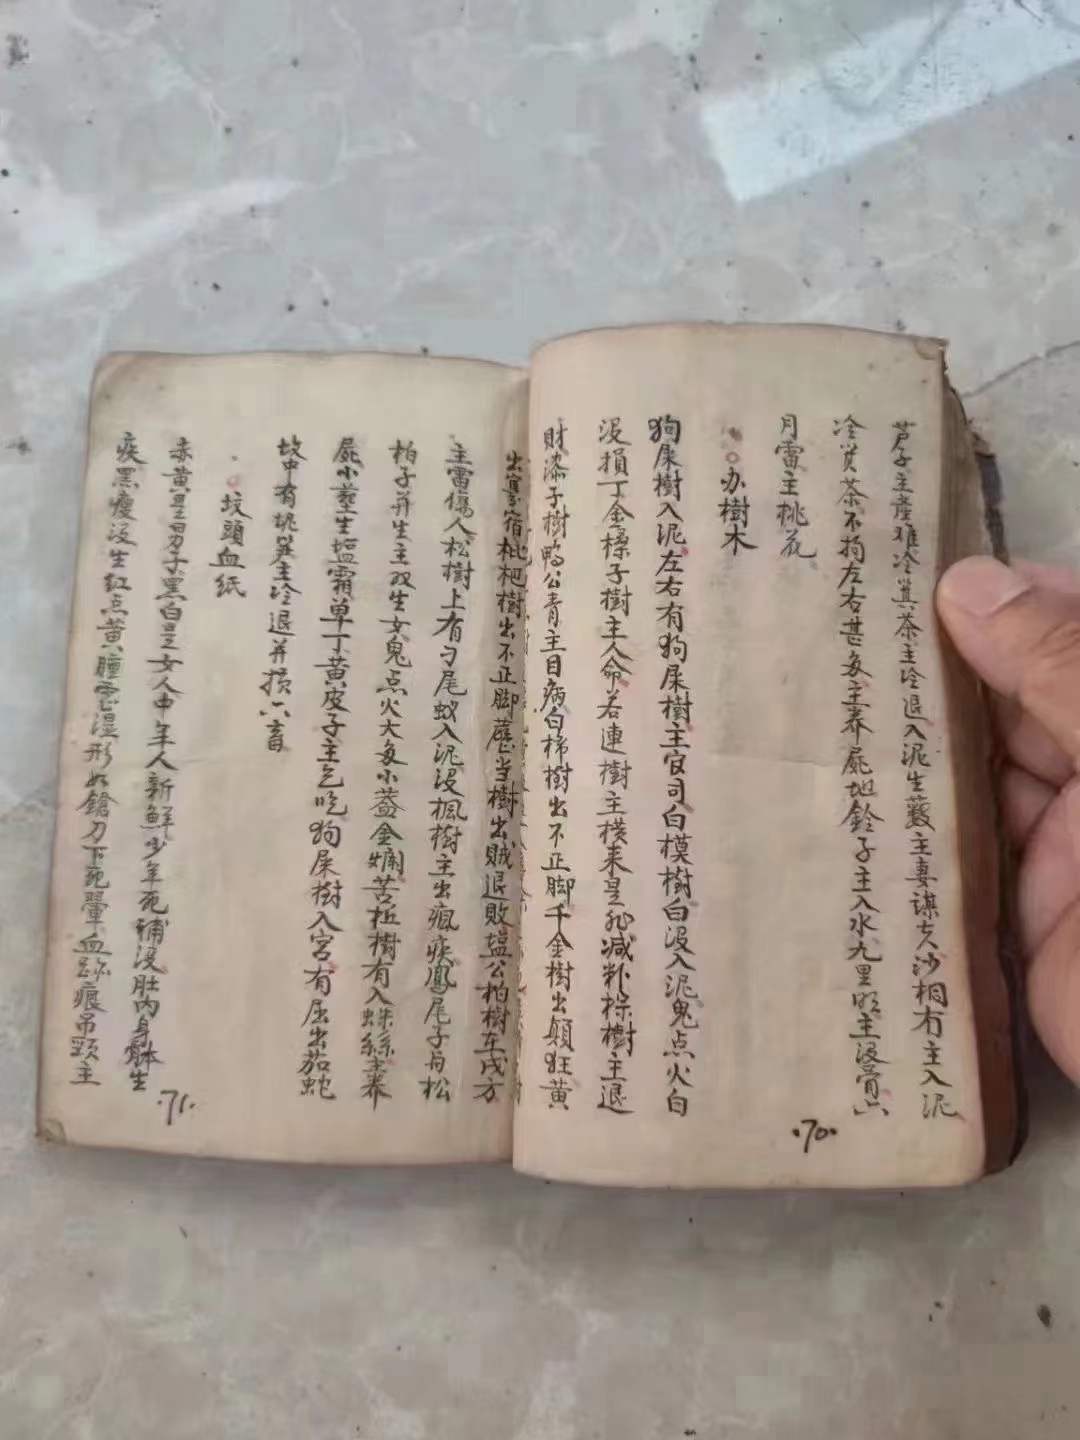 芦子主產难冷箕茶主冷退入泥生藙主妻谋夫沙桐冇主入泥
冷箕茶不拘左右甚多主养屍地鈴子主入水九里明主浸骨六
月雷主桃花
办樹木
狗屎樹入泥左右有狗屎樹主官司白模樹白没入泥鬼点火白
没損丁金樣子樹主人命若連樹主横來是非减籿棕樹主退
財漆子樹鴨公青主目病白柿樹出不正脚千金樹出顛狂黄
出寡宿枇杷樹出不正脚 当樹出賊退敗塩公柏樹在戌方
主雷傷人松樹上有刁尾蚁入泥没楓樹主出瘋疾鳳尾子舟松
柏子并生主双生女鬼点火大多小葢金 苦 樹有入蛛絲主养
屍小 生塩霜单丁黄皮子主乞吃狗屎樹入宮有屈出茄蛇
坟中有 主冷退并損六畜
坟頭血紙
赤黄是男子黑白是女人中年人新鮮少年死 没肚内身躰生
疾黑瘦没生红点黄腫 湿形如鎗刀下死暈血 痕吊頸主
·70·
·71·